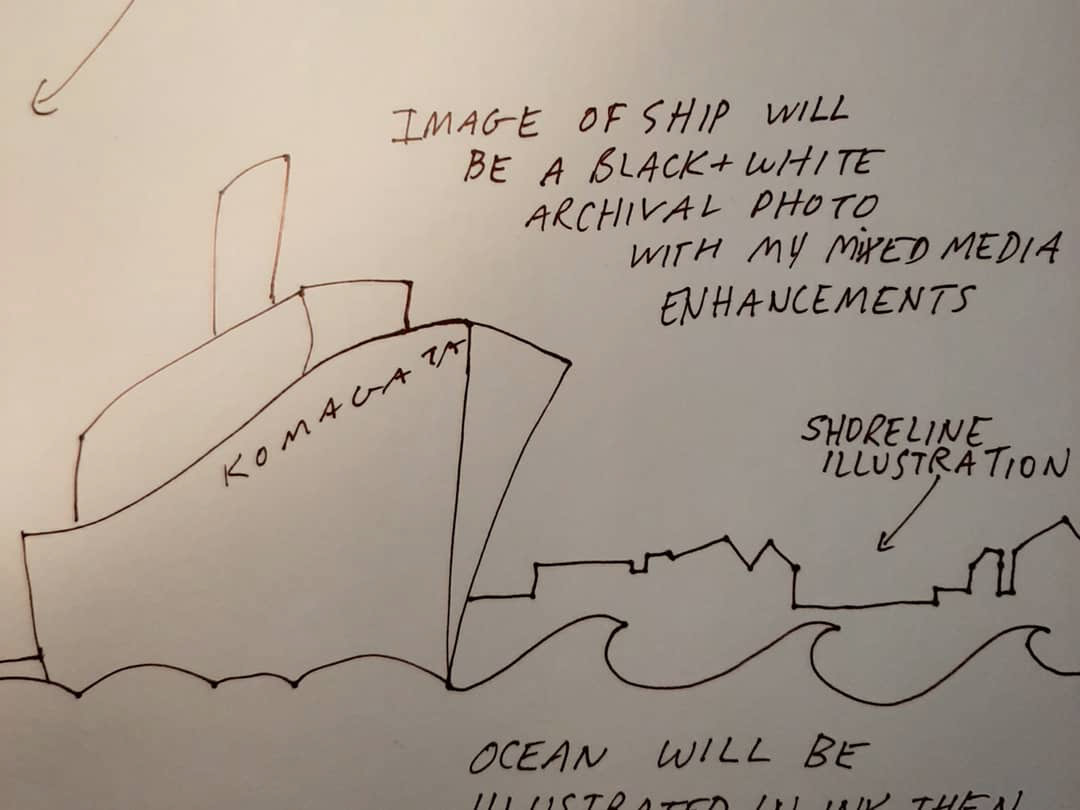 IMAGE OF SHIP WILL
BE A BLACK + WHITE
ARCHIVAL PHOTO
WITH MY MIXED MEDIA
ENHANCEMENTS
KOMAGATA
SHORELINE
ILLUSTRATION
OCEAN WILL BE
ILLUSTRATED IN INK THEN